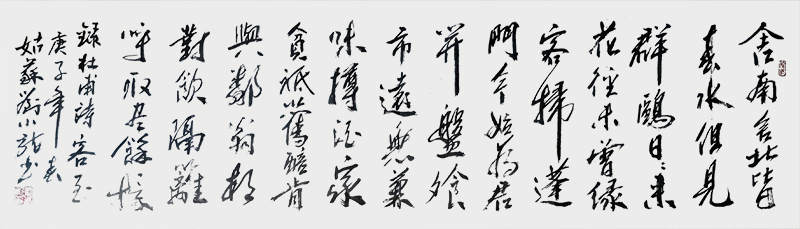 舍南舍北皆
春水但見
群鷗日日來
花徑未曾緣
客掃蓬
門今始為君
開盤飧
市遠無兼
味樽酒家
貧祗舊醅肯
與鄰翁相
對飲隔籬
呼取盡餘杯
錄杜甫詩客至
庚子年春
姑蘇 書